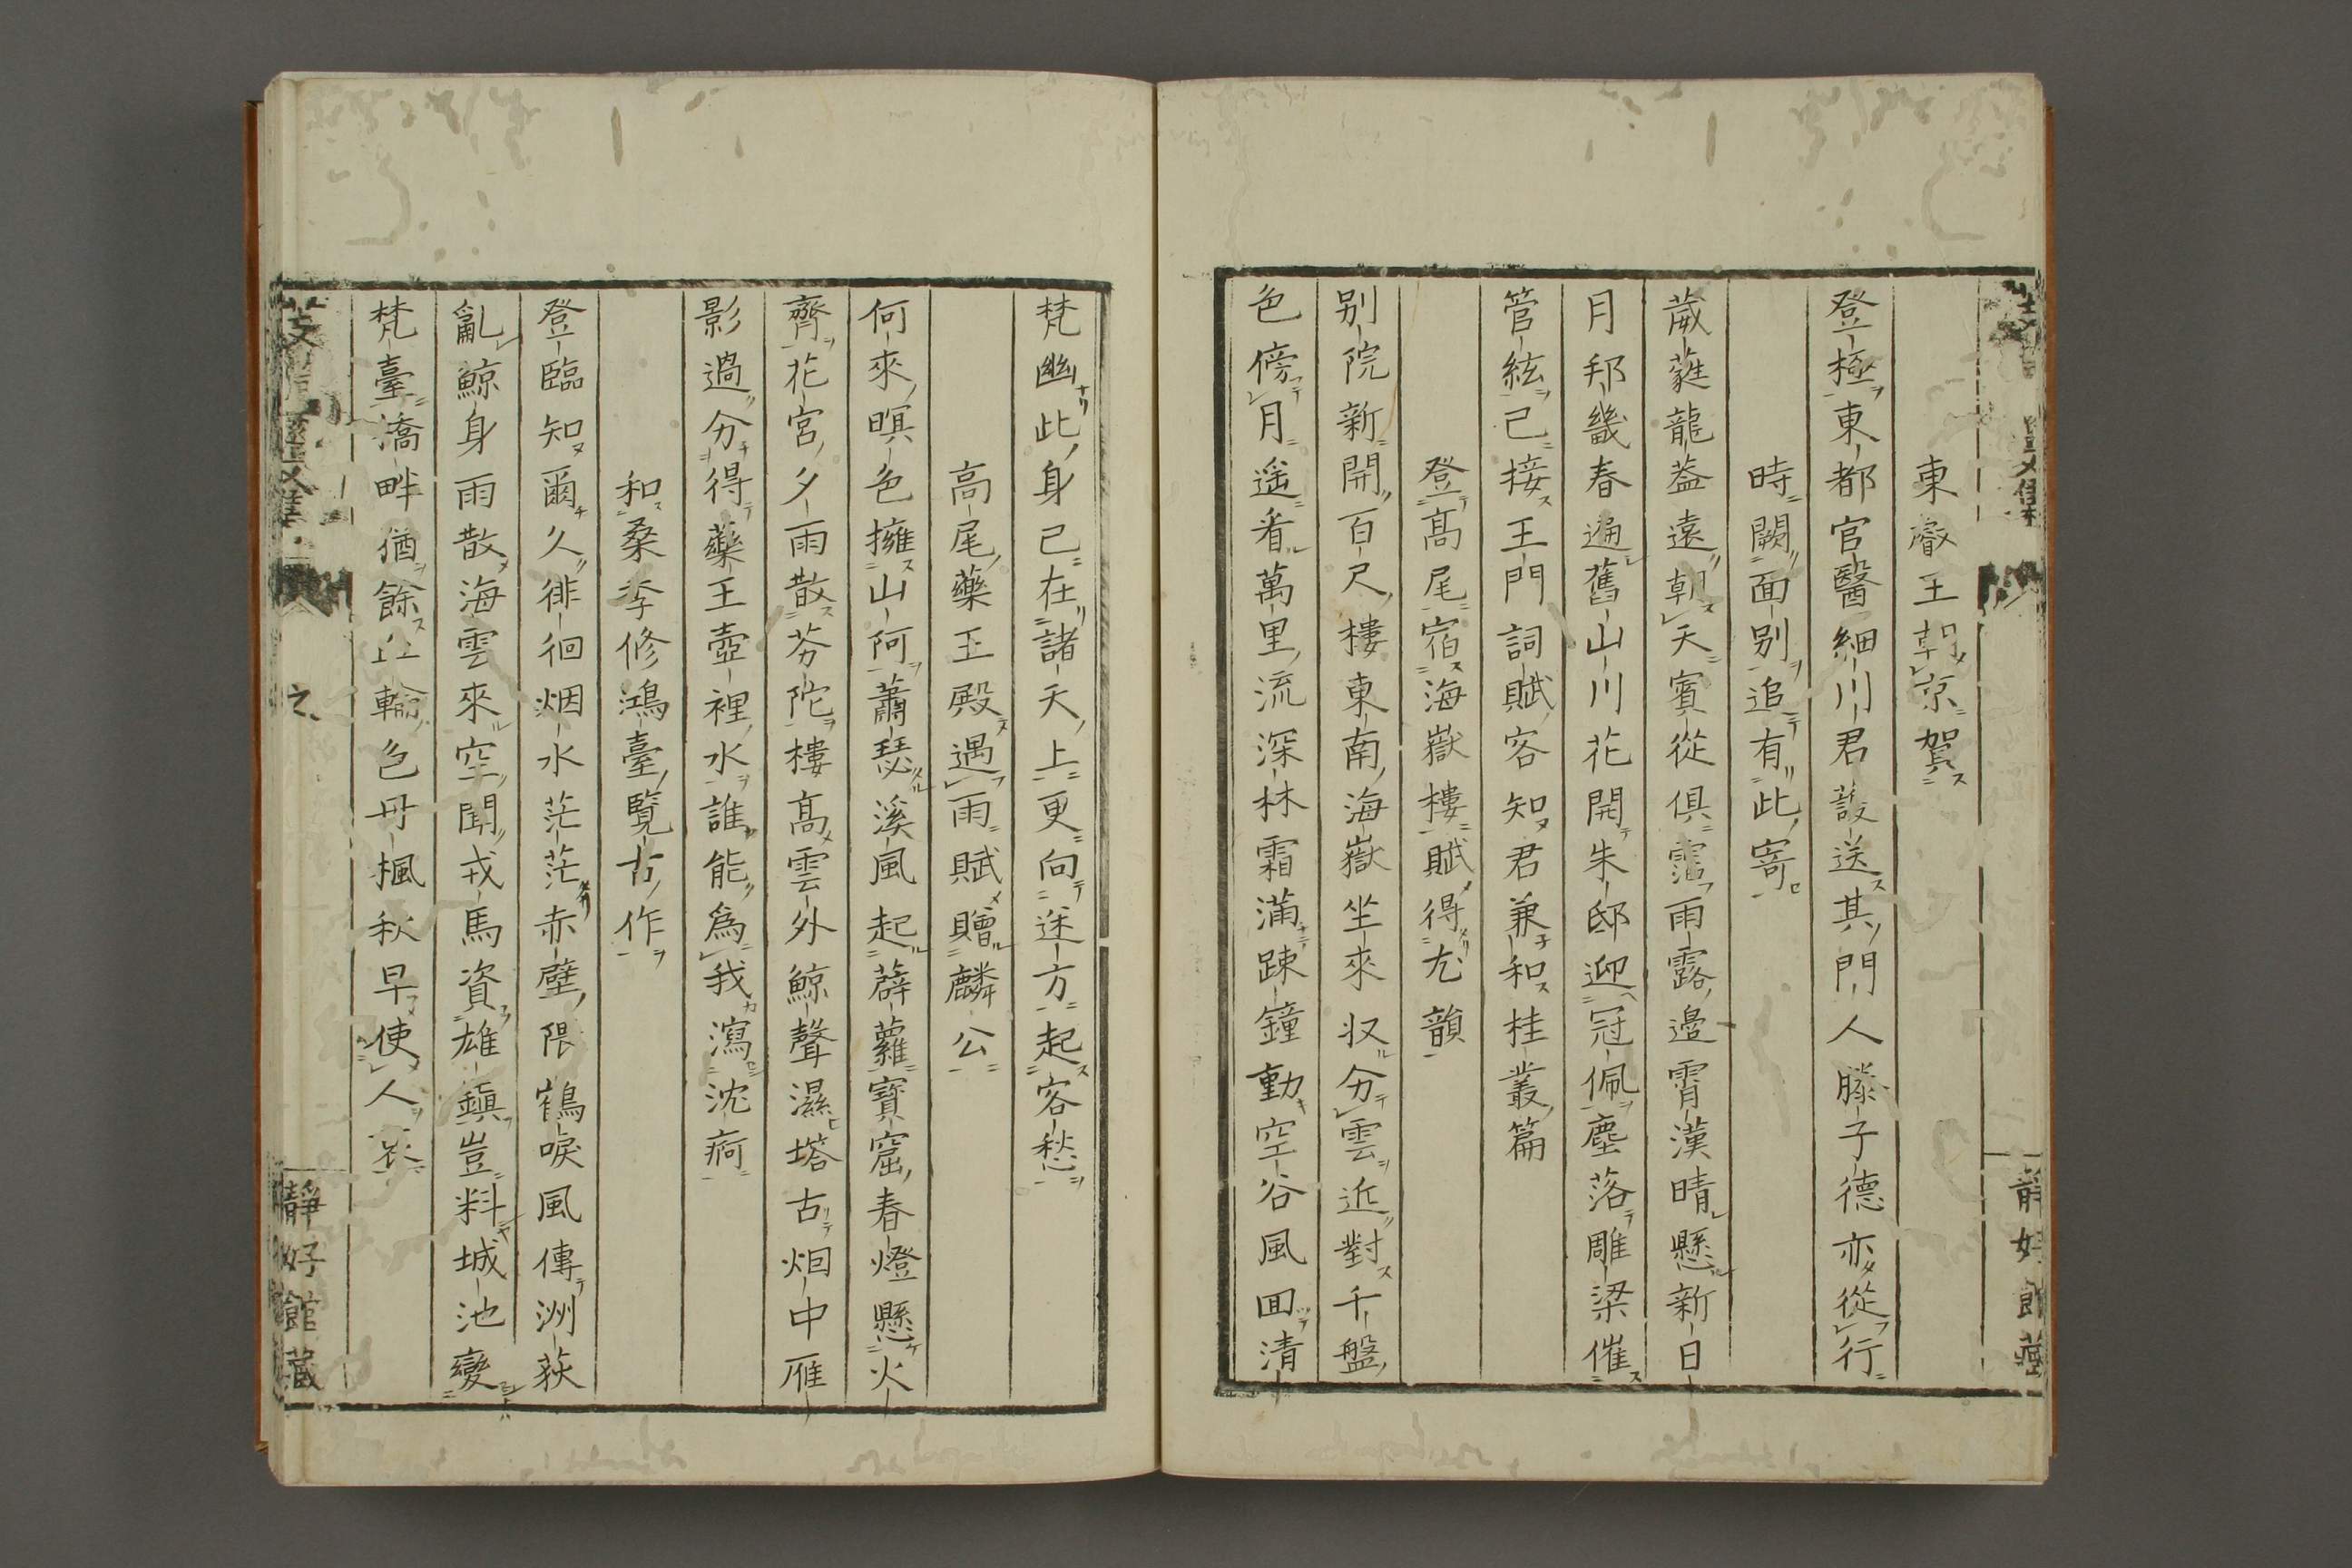 東睿王朝京賀
登極東都官醫細川君護送其門人滕子德亦從行
時闕面别追有此寄
葳蕤龍葢遠朝天賓從俱霑雨露邉霄漢晴懸新日
月邦畿春遍舊山川花開朱邸迎冠佩塵落雕梁催
管絃已接王門詞賦客知君兼和桂叢篇
登髙尾宿海嶽樓賦得尤韻
别院新開百尺樓東南海嶽坐來収分雲近對千盤
色傍月遥看萬里流深林霜滿踈鐘動空谷風囬清
梵幽此身已在諸天上更向迷方起客愁
高尾藥王殿遇雨賦贈麟公
何來暝色擁山阿蕭瑟溪風起薜蘿寶窟春燈懸火
齊花宮夕雨散芬陀樓髙雲外鯨聲濕塔古烟中雁
影過分得藥王壺裡水誰能為我瀉沈痾
和桒李修鴻臺覽古作
登臨知爾久徘徊烟水茫茫赤壁隈鶴唳風傳洲荻
亂鯨身雨散海雲來空聞戎馬資雄鎮豈料城池變
梵臺滴畔猶餘丘輪色丹楓秋早使人哀
靜好館藏
靜好館藏